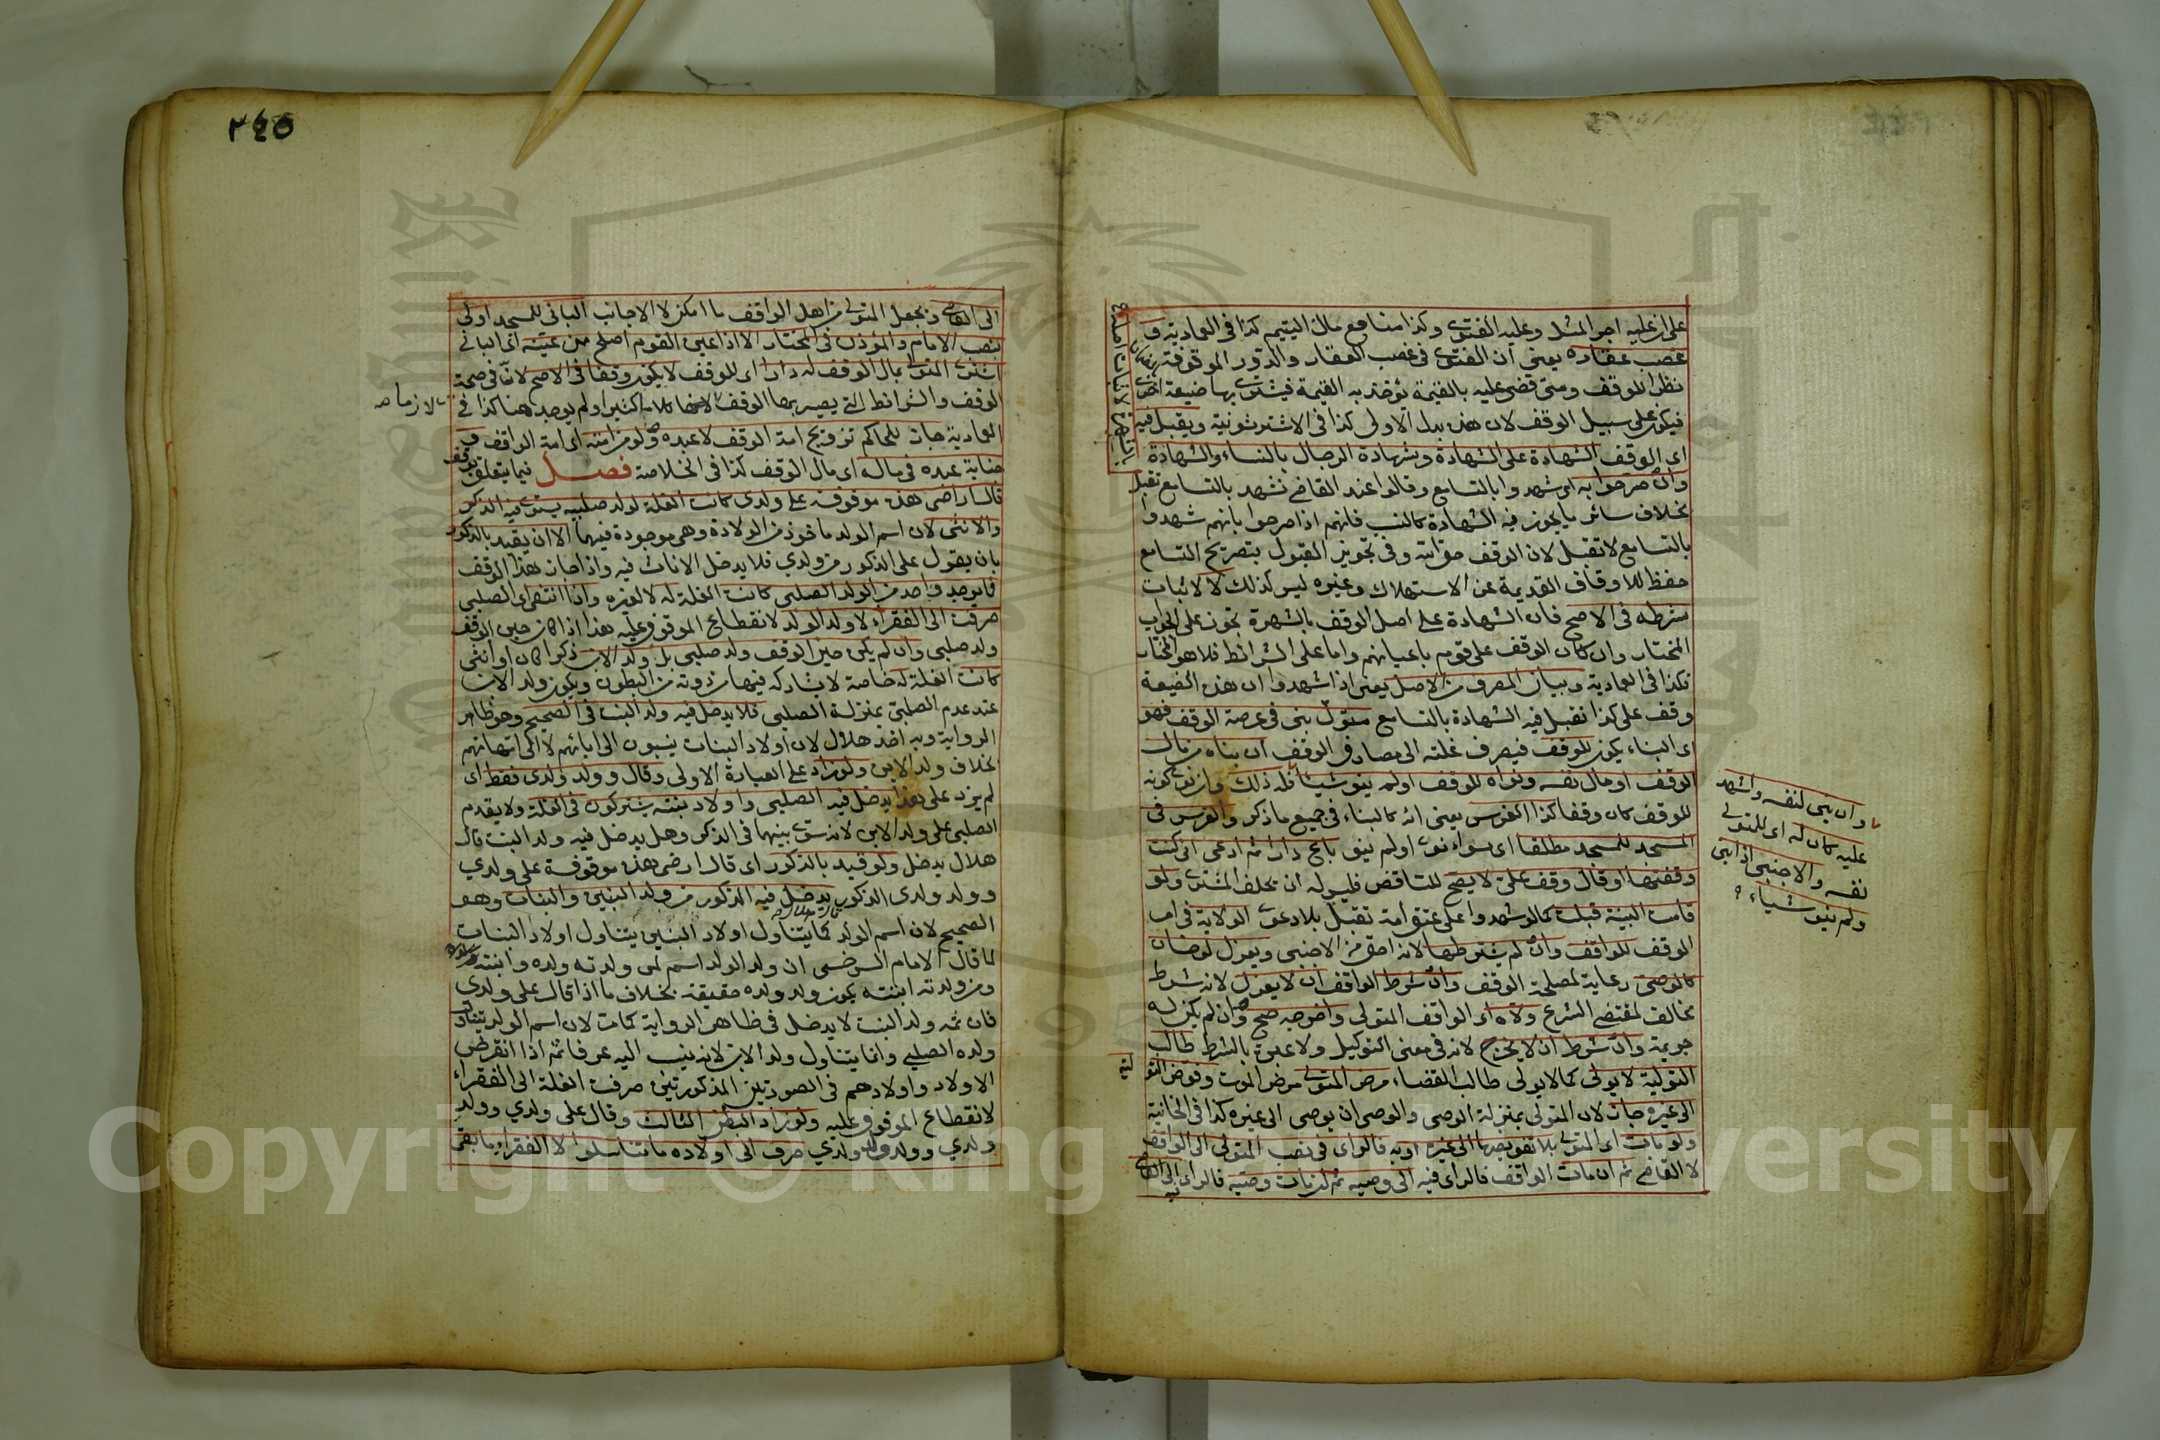 على ان عليه اجر المثل وعليه الفتوى وكذا منافع مال اليتيم كذا في العمادية و
غصب عقاره يعني ان الفتوى في غصب العقار والدور الموقوفة
نظرا للوقف ومتى قضى عليه بالقيمة تؤخذ به القيمة فيشترى بها ضيعة اخرى
فيكون على سبيل الوقف لان هذا بدل الاولى كذا في الاشتروشنية ويقبل فيه
اى الوقف الشهادة على الشهادة وشهادة الرجال بالنساء والشهادة
وان صرحوا به اى شهدوا بالتسامع وقالوا عند القاضي نشهد بالتسامع تقبل
بخلاف سائر ما يجوز فيه الشهادة كالنسب فانهم اذا صرحوا بانهم شهدوا
بالتسامع لا تقبل لان الوقف حق الله وفي تجويز القبول بتصريح التسامع
حفظ للاوقاف القديمة عن الاستهلاك وغيره ليس كذلك لا لاثبات
شرطه في الاصح فان الشهادة على اصل الوقف بالشهرة تجوز على الجواب
المختار وان كان الوقف على قوم باعيانهم واما على الشرائط فلا هو المختار
كذا في العمادية وبيان المصرف من الاصل يعني اذا شهدوا ان هذه الضيعة
وقف على كذا تقبل فيه الشهادة بالتسامع متول بنى في عرصة الوقف فهو
اى البناء يكون للوقف فيصرف غلته الى مصارف الوقف ان بناه من مال
الوقف او مال نفسه ونواه للوقف او لم ينو شيئا فله ذلك وان نوى كونه
للوقف كان وقفا كذا الغرس يعني انه كالبناء في جميع ما ذكر والغرس في
المسجد للمسجد مطلقا اى سواء نوى او لم ينو باع دارا ثم ادعى انى كنت
وقفتها او قال وقف على لا يصح للتناقض فليس له ان يحلف المشترى ولو
قامت البينة قبلت كما لو شهدوا على عتق امة تقبل بلا دعوى الولاية في امر
الوقف للواقف وان لم يشترطها لانه احق من الاجنبي ويعزل لو خان
كالوصى رعاية لمصلحة الوقف وان شرط الواقف ان لا يعزل لانه شرط
مخالف لمقتضى الشرع ولاه اى الواقف المتولى واخرجه صح وان لم يكن له
جريمة وان شرط ان لا يخرج لانه في معنى التوكيل ولا عبرة بالشرط طالب
التولية لا يولى كما لا يولى طالب القضاء مرض المتولى مرض الموت وفوض التو
لية
الى غيره جاز لان المتولى بمنزلة الوصى والوصى ان يوصى الى غيره كذا في الخانية
ولو مات اى المتولى بلا تفويضها الى غيره فالراى في نصب المتولى الى الواقف
لا القاضي ثم ان مات الواقف فالراى فيه الى وصيه ثم ان مات وصيه فالراى الى القاضى
وان بنى لنفسه واشهد
عليه كان له اى للمتولى
نفسه والاجنبى اذا بنى
ولم ينو شياء
٢٤٥
الى القاضى ويجعل المتولى من اهل الواقف ما امكن لا الاجانب البانى للمسجد اولى
بنصب الامام والمؤذن في المختار الا اذا عين القوم اصلح ممن عينه اى البانى
اشترى المتولى بمال الوقف له دارا اى للوقف لا يكون وقفا في الاصح لان في صحة
الوقف والشرائط التى يصير بها الوقف لازما كلاما كثيرا ولم يوجد هنا كذا في
لازما صح
العمادية جاز للحاكم تزويج امة الوقف لا عبده ولو من امته اى امة الواقف و
جناية عبده في ماله اى مال الوقف كذا في الخلاصة فصل فيما يتعلق بوقف
قال ارضى هذه موقوفة على ولدى كانت الغلة لولد صلبيه يستوى فيه الذكر
والانثى لان اسم الولد ماخوذ من الولادة وهى موجودة فيهما الا ان يقيد بالذكور
بان يقول على الذكور من ولدي فلا يدخل الاناث فيه واذا جاز هذا الوقف
فان وجد واحد من الولد الصلبى كانت الغلة له لا لغيره وان انتفى اى الصلبى
صرفت الى الفقراء لا ولد الولد لانقطاع الموقوف عليه هذا اذا كان حين الوقف
ولد صلبى وان لم يكن حين الوقف ولد صلبى بل ولد الابن ذكرا كان او انثى
كانت الغلة له خاصة لا يشاركه فيها من دونه من البطون ويكون ولد الابن
عند عدم الصلبى بمنزلة الصلبى فلا يدخل فيه ولد البنت في الصحيح وهو ظاهر
الرواية وبه اخذ هلال لان اولاد البنات ينسبون الى ابائهم لا الى امهاتهم
بخلاف ولد الابن ولو زاد على العبارة الاولى وقال وولد ولدى فقط اى
لم يزد على هذا يدخل فيه الصلبى واولاد بنيه يشتركون في الغلة ولا يقدم
الصلبى على ولد الابن لانه سوى بينهما في الذكر وهل يدخل فيه ولد البنت قال
هلال يدخل ولو قيد بالذكور اى قال ارضى هذه موقوفة على ولدي
وولد ولدى الذكور يدخل فيه الذكور من ولد البنين والبنات وهو
الصحيح لان اسم الولد كما يتناول اولاد البنين يتناول اولاد البنات
لما قال الامام السرخسى ان ولد الولد اسم لمن ولدته ولده وابنته ولده
ومن ولدته ابنته يكون ولد ولده حقيقة بخلاف ما اذا قال على ولدي
فان ثمه ولد البنت لا يدخل في ظاهر الرواية كما مر لان اسم الولد يتناول
ولده الصلبي وانما يتناول ولد الابن لانه ينسب اليه عرفا ثم اذا انقرض
الاولاد واولادهم في الصورتين المذكورتين صرفت الغلة الى الفقراء
لانقطاع الموقوف عليه ولو زاد البطن الثالث وقال على ولدي وولد
ولدي وولد ولد ولدي صرف الى اولاده ما تناسلوا لا الفقراء ما بقى
Copyright © King Saud University